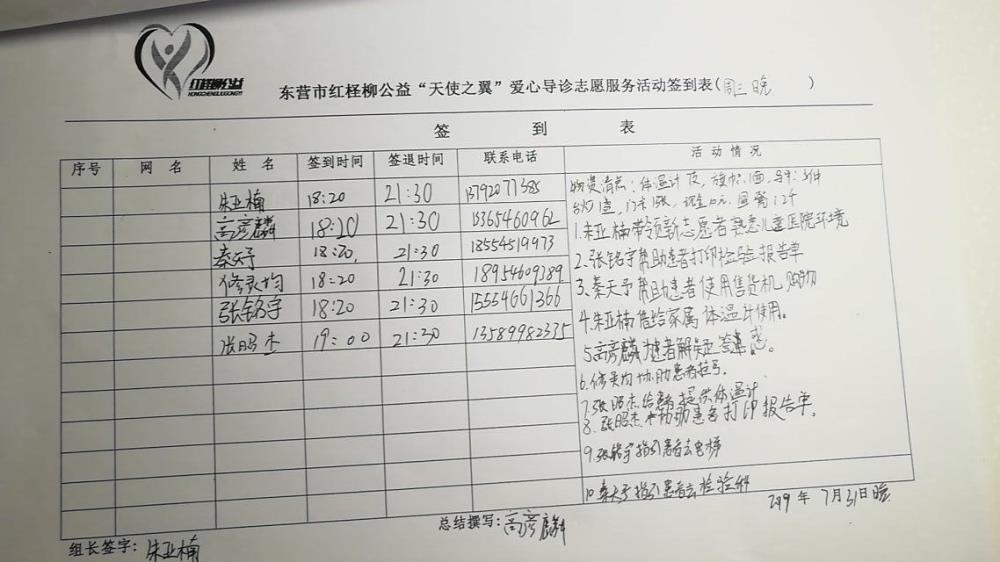 红柽柳公益
HONGCHENGLIUGONGYI
东营市红柽柳公益“天使之翼”爱心导诊志愿服务活动签到表(周三晚)
签 到 表
序号 网 名 姓 名 签到时间 签退时间 联系电话 活 动 情 况
朱亚楠 18:20 21:30 13792077385
高彦麟 18:20 21:30 15365460962
秦天予 18:20 21:30 18554519973
修 均 18:20 21:30 18954609189
张铭宇 18:20 21:30 15554661366
张昭杰 19:00 21:30 13589982335
物资清点:体温计 旗帜1面,
1.朱亚楠带领新志愿者熟悉儿童医院环境
2.张铭宇帮助患者打印检验报告单
3.秦天予帮助患者使用售货机购物
4.朱亚楠借给家属体温计使用。
5.高彦麟为患者解疑答惑。
6.修 均协助患者挂号。
7.张昭杰给患者提供体温计
8.张昭杰协助患者打印报告单。
9.张铭宇指引患者去电梯
10.秦天予指引患者去检验科
2019年7月31日晚
总结撰写:高彦麟
组长签字:朱亚楠